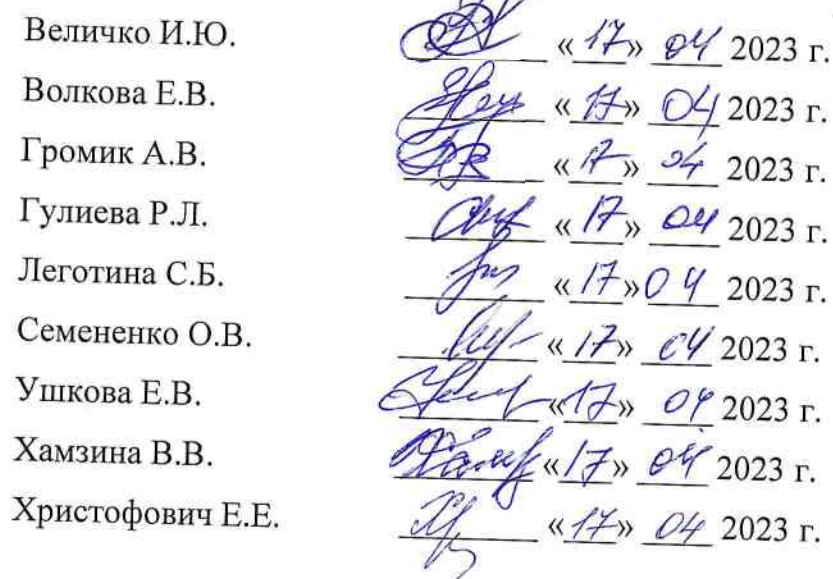 Величко И.Ю. «17» 04 2023 г.
Волкова Е.В. «17» 04 2023 г.
Громик А.В. «17» 04 2023 г.
Гулиева Р.Л. «17» 04 2023 г.
Леготина С.Б. «17» 04 2023 г.
Семененко О.В. «17» 04 2023 г.
Ушкова Е.В. «17» 04 2023 г.
Хамзина В.В. «17» 04 2023 г.
Христофович Е.Е. «17» 04 2023 г.